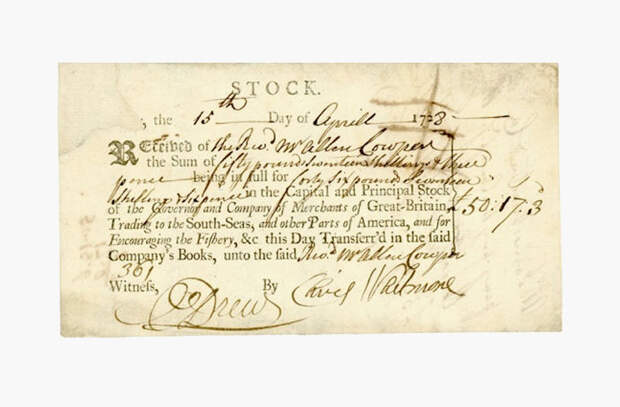 STOCK.
; the 15th Day of Aprill 1728
Received of the Revd. Mr Allen Cowper
the Sum of fifty pounds Seventeen Shillings & three
pence being in full for forty Six pounds Seventeen
Shillings & Six pence in the Capital and Principal Stock
of the Governor and Company of Merchants of Great-Britain, £50:17:3
Trading to the South-Seas, and other Parts of America, and for
Encouraging the Fishery, &c this Day Transferr'd in the said
Company's Books, unto the said, Revd. Mr Allen Cowper
361
Witness, By
Drew